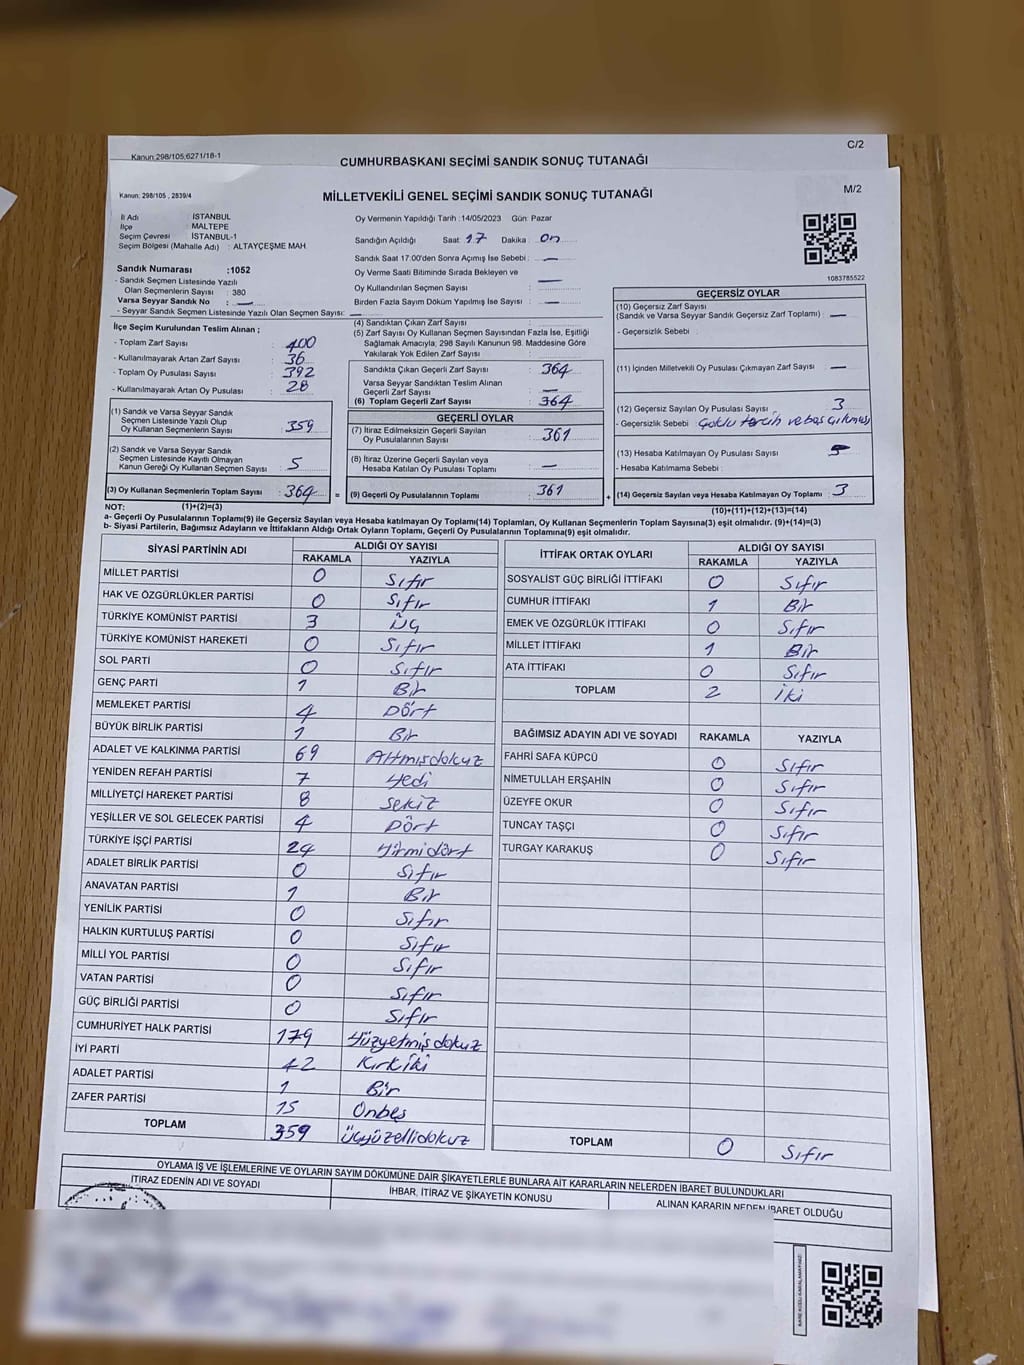 Kanun:298/105;6271/18-1
C/2
CUMHURBAŞKANI SEÇİMİ SANDIK SONUÇ TUTANAĞI
Kanun: 298/105 , 2839/4
MİLLETVEKİLİ GENEL SEÇİMİ SANDIK SONUÇ TUTANAĞI
M/2
İl Adı : İSTANBUL
İlçe : MALTEPE
Seçim Çevresi : İSTANBUL-1
Seçim Bölgesi (Mahalle Adı) : ALTAYÇEŞME MAH.
Sandık Numarası :1052
- Sandık Seçmen Listesinde Yazılı
Olan Seçmenlerin Sayısı : 380
Varsa Seyyar Sandık No : —
- Seyyar Sandık Seçmen Listesinde Yazılı Olan Seçmen Sayısı: —
Oy Vermenin Yapıldığı Tarih :14/05/2023 Gün: Pazar
Sandığın Açıldığı Saat: 17 Dakika : on
Sandık Saat 17.00'den Sonra Açımış İse Sebebi : —
Oy Verme Saati Bitiminde Sırada Bekleyen ve
Oy Kullandırılan Seçmen Sayısı : —
Birden Fazla Sayım Döküm Yapılmış İse Sayısı : —
1083785522
İlçe Seçim Kurulundan Teslim Alınan ;
- Toplam Zarf Sayısı : 400
- Kullanılmayarak Artan Zarf Sayısı : 36
- Toplam Oy Pusulası Sayısı : 392
- Kullanılmayarak Artan Oy Pusulası : 28
(1) Sandık ve Varsa Seyyar Sandık
Seçmen Listesinde Yazılı Olup
Oy Kullanan Seçmenlerin Sayısı : 359
(2) Sandık ve Varsa Seyyar Sandık
Seçmen Listesinde Kayıtlı Olmayan
Kanun Gereği Oy Kullanan Seçmen Sayısı : 5
(3) Oy Kullanan Seçmenlerin Toplam Sayısı : 364
(1)+(2)=(3)
(4) Sandıktan Çıkan Zarf Sayısı :
(5) Zarf Sayısı Oy Kullanan Seçmen Sayısından Fazla İse, Eşitliği
Sağlamak Amacıyla; 298 Sayılı Kanunun 98. Maddesine Göre
Yakılarak Yok Edilen Zarf Sayısı :
Sandıkta Çıkan Geçerli Zarf Sayısı : 364
Varsa Seyyar Sandıktan Teslim Alınan
Geçerli Zarf Sayısı : —
(6) Toplam Geçerli Zarf Sayısı : 364
GEÇERLİ OYLAR
(7) İtiraz Edilmeksizin Geçerli Sayılan
Oy Pusulalarının Sayısı : 361
(8) İtiraz Üzerine Geçerli Sayılan veya
Hesaba Katılan Oy Pusulası Toplamı : —
= (9) Geçerli Oy Pusulalarının Toplamı : 361
GEÇERSİZ OYLAR
(10) Geçersiz Zarf Sayısı
(Sandık ve Varsa Seyyar Sandık Geçersiz Zarf Toplamı) : —
- Geçersizlik Sebebi :
(11) İçinden Milletvekili Oy Pusulası Çıkmayan Zarf Sayısı : —
(12) Geçersiz Sayılan Oy Pusulası Sayısı : 3
- Geçersizlik Sebebi : Çoklu tercih ve boş çıkmış
(13) Hesaba Katılmayan Oy Pusulası Sayısı :
- Hesaba Katılmama Sebebi :
+ (14) Geçersiz Sayılan veya Hesaba Katılmayan Oy Toplamı : 3
(10)+(11)+(12)+(13)=(14)
NOT:
a- Geçerli Oy Pusulaları Toplamı(9) ile Geçersiz Sayılan veya Hesaba katılmayan Oy Toplamı(14) Toplamları, Oy Kullanan Seçmenlerin Toplam Sayısına(3) eşit olmalıdır. (9)+(14)=(3)
b- Siyasi Partilerin, Bağımsız Adayların ve İttifakların Aldığı Ortak Oyların Toplamı, Geçerli Oy Pusulalarının Toplamına(9) eşit olmalıdır.
SİYASİ PARTİNİN ADI ALDIĞI OY SAYISI
RAKAMLA YAZIYLA
MİLLET PARTİSİ 0 Sıfır
HAK VE ÖZGÜRLÜKLER PARTİSİ 0 Sıfır
TÜRKİYE KOMÜNİST PARTİSİ 3 Üç
TÜRKİYE KOMÜNİST HAREKETİ 0 Sıfır
SOL PARTİ 0 Sıfır
GENÇ PARTİ 1 Bir
MEMLEKET PARTİSİ 4 Dört
BÜYÜK BİRLİK PARTİSİ 1 Bir
ADALET VE KALKINMA PARTİSİ 69 Altmışdokuz
YENİDEN REFAH PARTİSİ 7 Yedi
MİLLİYETÇİ HAREKET PARTİSİ 8 Sekiz
YEŞİLLER VE SOL GELECEK PARTİSİ 4 Dört
TÜRKİYE İŞÇİ PARTİSİ 24 Yirmidört
ADALET BİRLİK PARTİSİ 0 Sıfır
ANAVATAN PARTİSİ 1 Bir
YENİLİK PARTİSİ 0 Sıfır
HALKIN KURTULUŞ PARTİSİ 0 Sıfır
MİLLİ YOL PARTİSİ 0 Sıfır
VATAN PARTİSİ 0 Sıfır
GÜÇ BİRLİĞİ PARTİSİ 0 Sıfır
CUMHURİYET HALK PARTİSİ 179 Yüzyetmişdokuz
İYİ PARTİ 42 Kırkiki
ADALET PARTİSİ 1 Bir
ZAFER PARTİSİ 15 Onbeş
TOPLAM 359 Üçyüzellidokuz
İTTİFAK ORTAK OYLARI ALDIĞI OY SAYISI
RAKAMLA YAZIYLA
SOSYALİST GÜÇ BİRLİĞİ İTTİFAKI 0 Sıfır
CUMHUR İTTİFAKI 1 Bir
EMEK VE ÖZGÜRLÜK İTTİFAKI 0 Sıfır
MİLLET İTTİFAKI 1 Bir
ATA İTTİFAKI 0 Sıfır
TOPLAM 2 İki
BAĞIMSIZ ADAYIN ADI VE SOYADI RAKAMLA YAZIYLA
FAHRİ SAFA KÜPCÜ 0 Sıfır
NİMETULLAH ERŞAHİN 0 Sıfır
ÜZEYFE OKUR 0 Sıfır
TUNCAY TAŞÇI 0 Sıfır
TURGAY KARAKUŞ 0 Sıfır
TOPLAM 0 Sıfır
OYLAMA İŞ VE İŞLEMLERİNE VE OYLARIN SAYIM DÖKÜMÜNE DAİR ŞİKAYETLERLE BUNLARA AİT KARARLARIN NELERDEN İBARET BULUNDUKLARI
İTİRAZ EDENİN ADI VE SOYADI İHBAR, İTİRAZ VE ŞİKAYETİN KONUSU ALINAN KARARIN NEDEN İBARET OLDUĞU